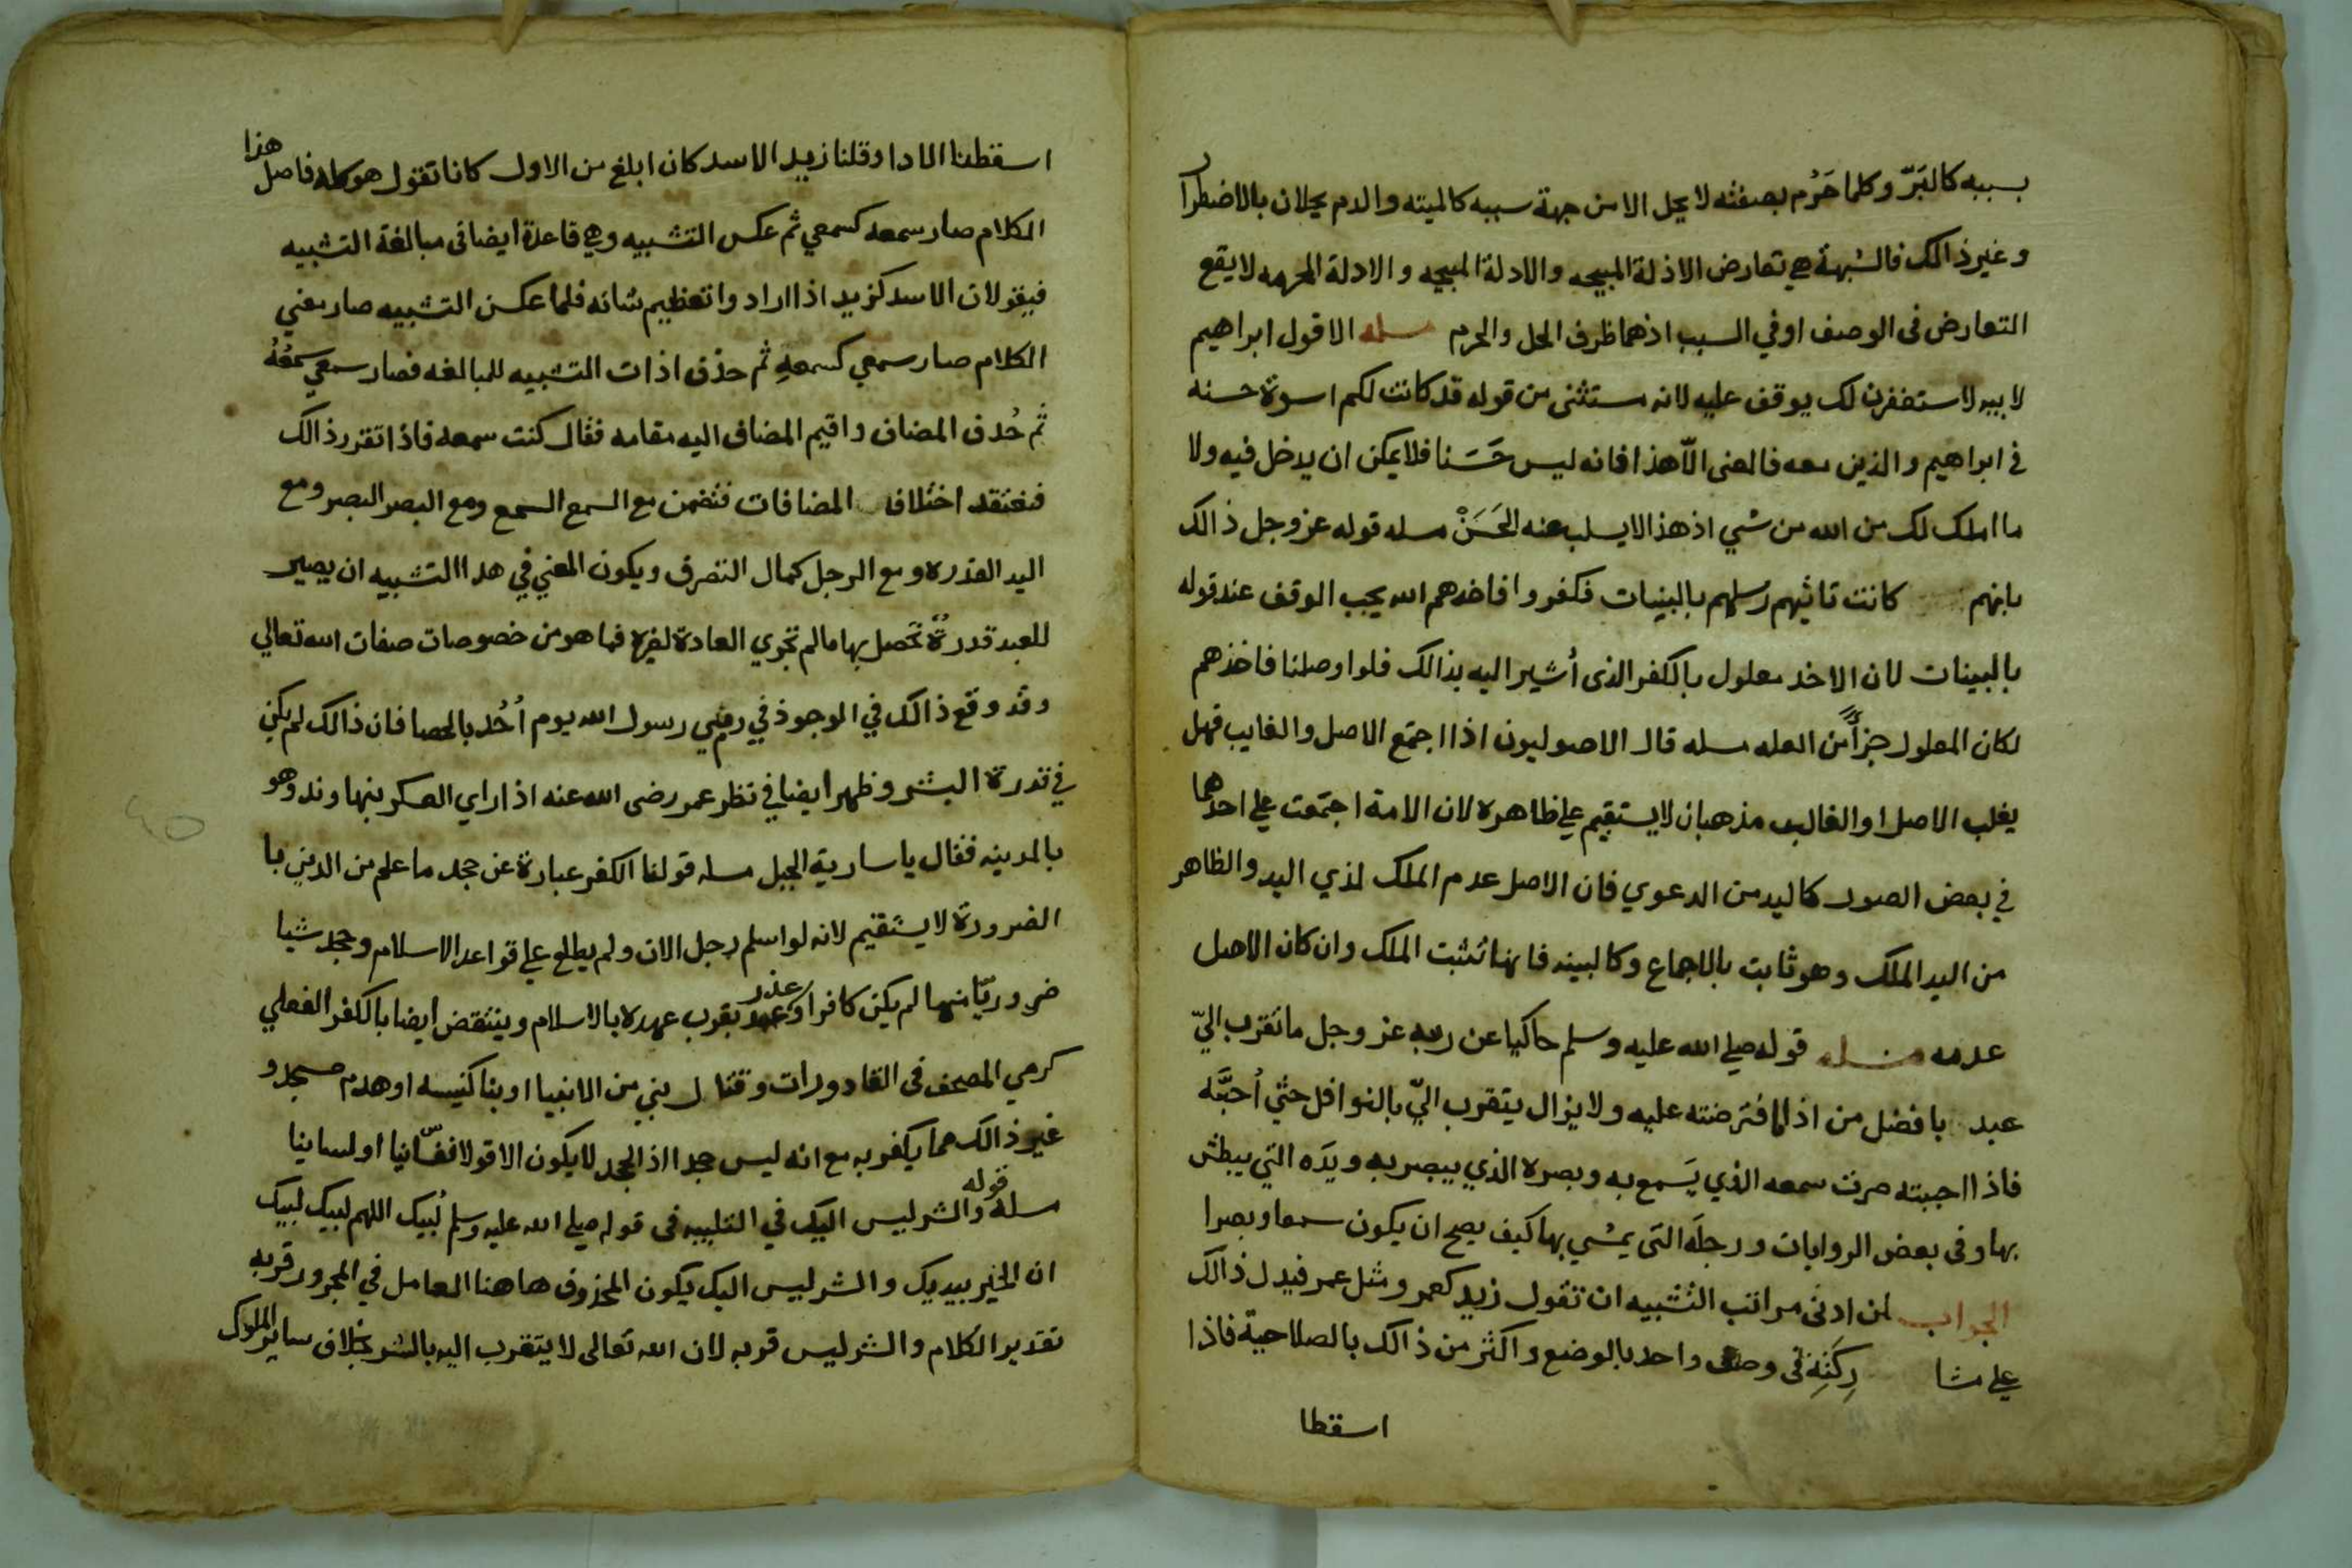 بسببه كالبَرّ وكلما حَرُم بصفته لا يحل الا من جهة سببه كالميته والدم يحلان بالاضطرار
وغير ذالك فالشبهة هي تعارض الادلة المبيحه والادلة المبيحه والادلة المحرمه لا يقع
التعارض فى الوصف او في السبب اذ هما ظرف الحل والحرم مسله الا قول ابراهيم
لابيه لاستغفرن لك يوقف عليه لانه مستثنى من قوله قد كانت لكم اسوة حسنه
في ابراهيم والذين معه فالمعنى الّا هذا فانه ليس حَسَنا فلا يمكن ان يدخل فيه ولا
ما املك لك من الله من شي اذ هذا لا يسلب عنه الحَسَنْ مسله قوله عز وجل ذالك
بانهم كانت تاتيهم رُسلهم بالبينات فكفروا فاخذهم الله يجب الوقف عند قوله
بالبينات لان الاخذ معلول بالكفر الذى أشير اليه بذالك فلو اوصلنا فاخذهم
لكان المعلول جزأً من العله مسله قال الاصوليون اذا اجتمع الاصل والغايب فهل
يغلب الاصل او الغالب مذهبان لا يستقيم على ظاهره لان الامة اجتمعت على احدهما
في بعض الصور كاليد من الدعوي فان الاصل عدم الملك لذي اليد والظاهر
من اليد الملك وهو ثابت بالاجماع وكالبينه فانها تثبت الملك وان كان الاصل
عدمه مسله قوله صلى الله عليه وسلم حاكيا عن ربه عز وجل ما تقرب اليّ
عبد بافضل من اذا ما افترضته عليه ولا يزال يتقرب اليّ بالنوافل حتي أحبَّه
فاذا احببته صرت سمعه الذي يَسمع به وبصره الذي يبصر به ويدَه التي يبطش
بها وفى بعض الروايات ورجلَه التى يمشي بها كيف يصح ان يكون سمعا وبصرا
الجواب لمن ادنى مراتب التشبيه ان تقول زيد كعمر ومثل عمر فيدل ذالك
على مشا ركَتِه في وصف واحد بالوضع واكثر من ذالك بالصلاحية فاذا
اسقطا
اسقطنا الادا وقلنا زيد الاسد كان ابلغ من الاول كانا تقول هو فاصل هذا
الكلام صار سمعه كسمعي ثم عكس التشبيه وهي قاعدة ايضا فى مبالغة التشبيه
فيقولان الاسد كزيد اذا ارادوا تعظيم شانه فلما عكس التشبيه صار معني
الكلام صار سمعي كسمعهِ ثم حذف اذات التشبيه للمبالغه فصار سمعي سَمْعُهُ
ثم حُذف المضاف واقيم المضاف اليه مقامه فقال كنت سمعه فاذا تقرر ذالك
فنعتقد اختلاف المضافات فتضمن مع السمع السمع ومع البصر البصر ومع
اليد القدره ومع الرجل كمال التصرف ويكون المعني في هدا التشبيه ان يصير
للعبد قدرةٌ تحصل بها ما لم تجري العادة لغيره فما هو من خصوصات صفات الله تعالي
وقد وقع ذالك في الوجود في رمي رسول الله يوم أحُد بالحصا فان ذالك لم يكن
في قدرة البشر وظهر ايضا في نظر عمر رضى الله عنه اذا راي العسكر بنهاوند وهو
بالمدينه فقال يا سارية الجبل مسله قولنا الكفر عبارة عن جحد ما علم من الدين با
الضرورة لا يستقيم لانه لو اسلم رجل الان ولم يطلع على قواعد الاسلام وجحد شيا
ضروريّا منها لم يكن كافرا وعذر بقرب عهده بالاسلام وينتقض ايضا بالكفر الفعلي
كرمي المصحف فى القاذورات وقتال نبي من الانبيا او بنا كنيسه او هدم مسجد و
غير ذالك مما يكفر به مع انه ليس جحدا اذ الجحد لا يكون الا قولا نفسّانيا او لسانيا
مسلة قوله والشر ليس اليك في التلبيه فى قوله صلى الله عليه وسلم لبيك اللهم لبيك لبيك
ان الخير بيديك والشر ليس اليك يكون المحذوف هاهنا العامل في المجرور قربه
تقدير الكلام والشر ليس قربه لان الله تعالى لا يتقرب اليه بالشر بخلاف ساير الملوك